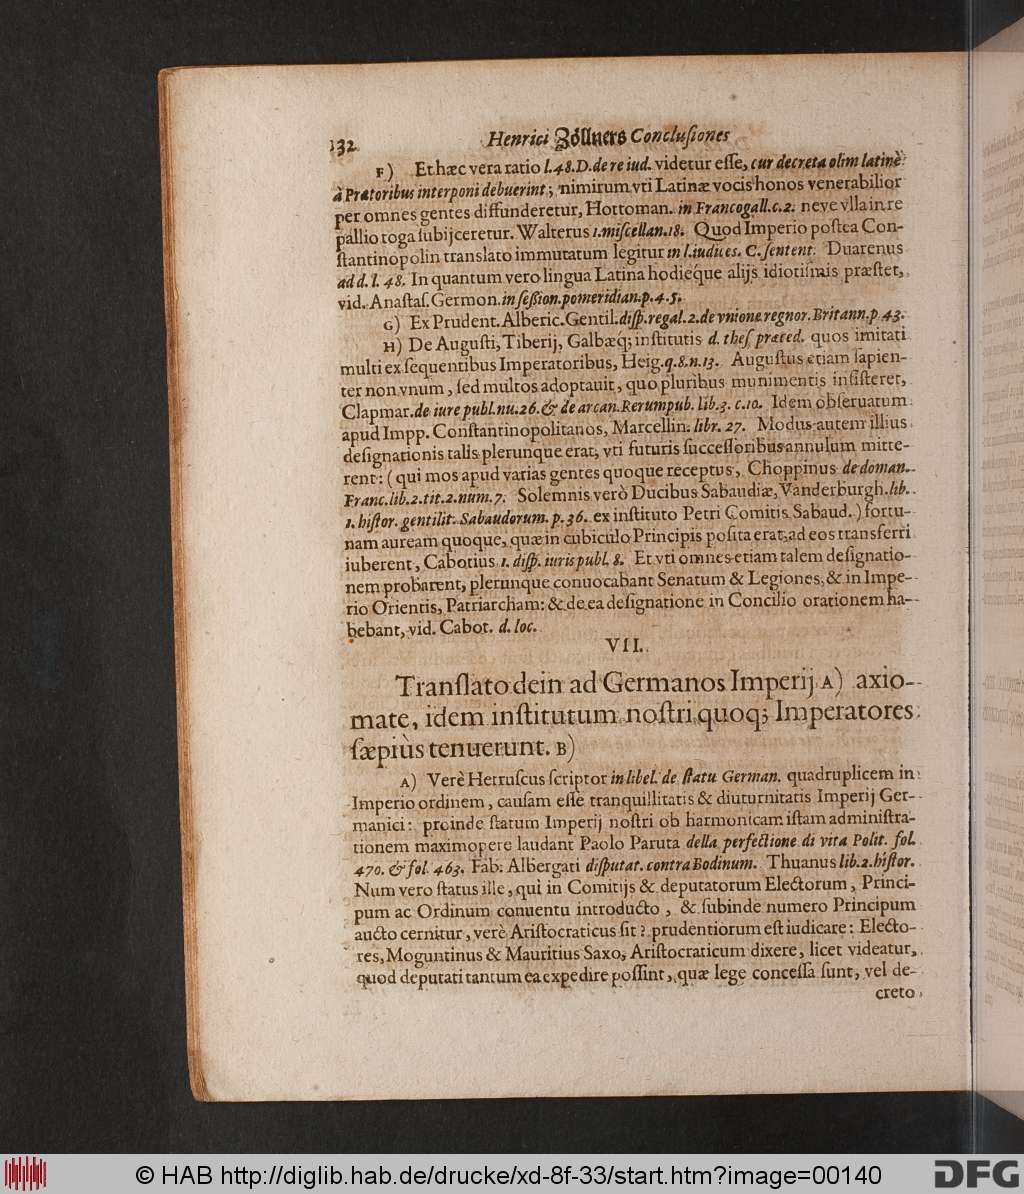 132 Henrici Zöllners Conclusiones
F) Et hæc vera ratio l.48.D.de re iud. videtur esse, cur decreta olim latinè
à Prætoribus interponi debuerint; nimirum vti Latinæ vocis honos venerabilior
per omnes gentes diffunderetur, Hottoman. in Francogall.c.2. neve vlla in re
pallio toga subijceretur. Walterus 1.miscellan.18. Quod Imperio postea Con-
stantinopolin translato immutatum legitur in l.iudices. C.sentent. Duarenus
ad d.l.48. In quantum vero lingua Latina hodieque alijs idiotismis præstet,
vid. Anastas. Germon. in session.pomeridian.p.4.5.
G) Ex Prudent. Alberic. Gentil. disp.regal.2.de vnione regnor.Britann.p 43.
H) De Augusti, Tiberij, Galbæq; institutis d. thes præced. quos imitati
multi ex sequentibus Imperatoribus, Heig.q.8.n.13. Augustus etiam sapien-
ter non vnum, sed multos adoptauit, quo pluribus munimentis insisteret,
Clapmar.de iure publ.nu.26.& de arcan.Rerumpub. lib.3. c.10. Idem obseruatum
apud Impp. Constantinopolitanos, Marcellin. libr. 27. Modus autem illius
designationis talis plerunque erat, vti futuris successoribus annulum mitte-
rent: (qui mos apud varias gentes quoque receptus, Choppinus de doman.
Franc.lib.2.tit.2.num.7. Solemnis verò Ducibus Sabaudiæ, Vanderburgh.lib.
1. histor. gentilit. Sabaudorum. p.36. ex instituto Petri Comitis Sabaud.) fortu-
nam auream quoque, quæ in cubiculo Principis posita erat, ad eos transferri
iuberent, Cabotius 1. disp. iuris publ. 8. Et vti omnes etiam talem designatio-
nem probarent, plerunque conuocabant Senatum & Legiones, & in Impe-
rio Orientis, Patriarcham: & de ea designatione in Concilio orationem ha-
bebant, vid. Cabot. d. loc.
VII.
Translato dein ad Germanos Imperij A) axio-
mate, idem institutum nostri quoq; Imperatores
sæpiùs tenuerunt. B)
A) Verè Hetruscus scriptor in libel. de statu German. quadruplicem in
Imperio ordinem, causam esse tranquillitatis & diuturnitatis Imperij Ger-
manici: proinde statum Imperij nostri ob harmonicam istam administra-
tionem maximopere laudant Paolo Paruta della perfectione di vita Polit. fol.
470. & fol 463. Fab. Albergati disputat. contra Bodinum. Thuanus lib.2.histor.
Num vero status ille, qui in Comitijs & deputatorum Electorum, Princi-
pum ac Ordinum conuentu introducto, & subinde numero Principum
aucto cernitur, verè Aristocraticus sit? prudentiorum est iudicare: Electo-
res, Moguntinus & Mauritius Saxo, Aristocraticum dixere, licet videatur,
quod deputati tantum ea expedire possint, quæ lege concessa sunt, vel de-
creto
© HAB http://diglib.hab.de/drucke/xd-8f-33/start.htm?image=00140
DFG